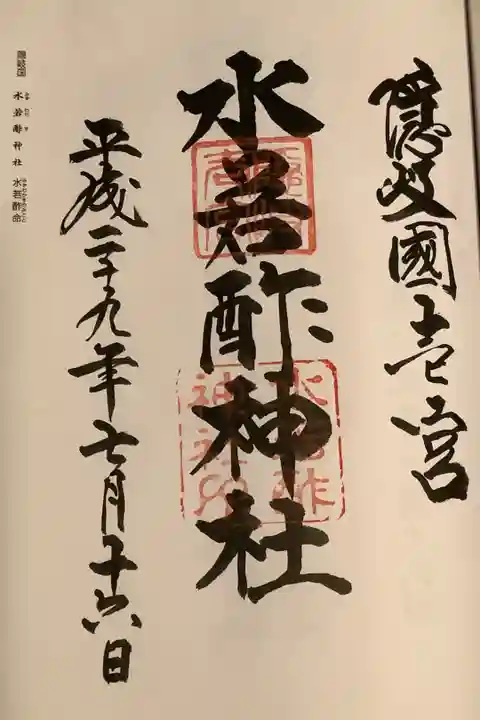 隠岐國壱宮
水若酢神社
水若酢
神社印
平成二十九年七月十六日
隠岐国
水若酢神社
水若酢命